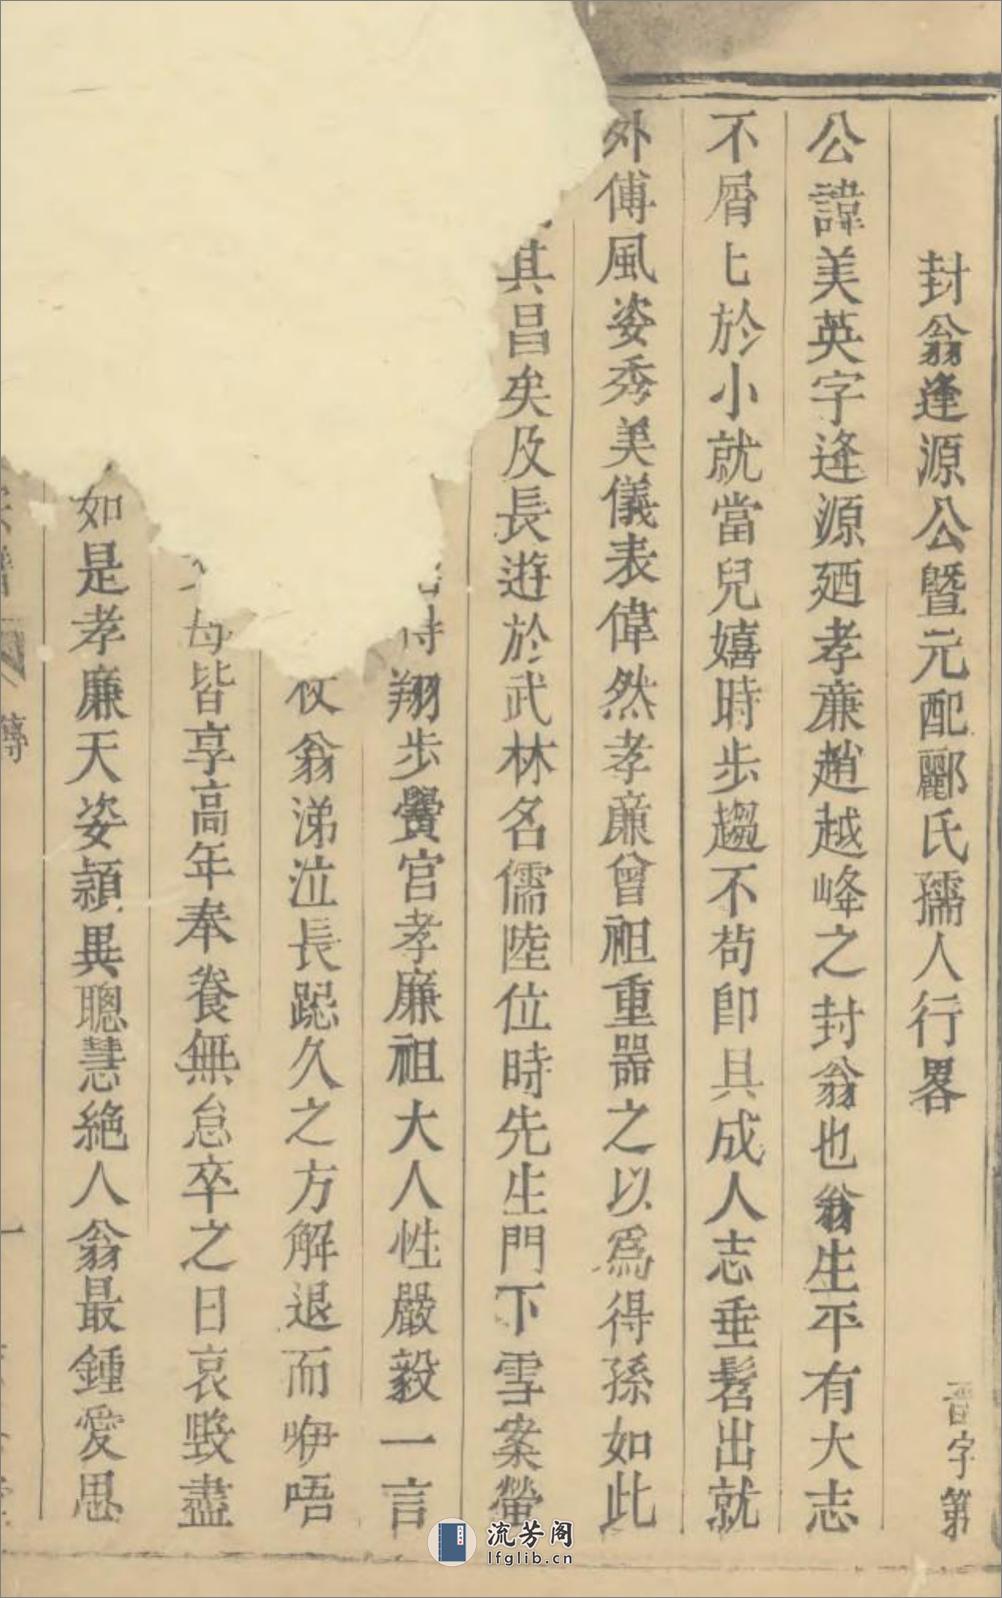 封翁逢源公暨元配酈氏孺人行畧
晋字第
公諱美英字逢源廼孝亷趙越峰之封翁也翁生平有大志
不屑匕於小就當兒嬉時步趨不茍卽具成人志垂髫出就
外傅風姿秀美儀表偉然孝亷曾祖重器之以爲得孫如此
其昌矣及長遊於武林名儒陸位時先生門下雪案螢
時翔步黌宫孝廉祖大人性嚴毅一言
翁涕泣長跽久之方解退而咿唔
母皆享高年奉飬無怠卒之日哀毁盡
如是孝廉天姿頴異聰慧絶人翁最鍾愛思
傳
一
流芳阁
lfglib.cn